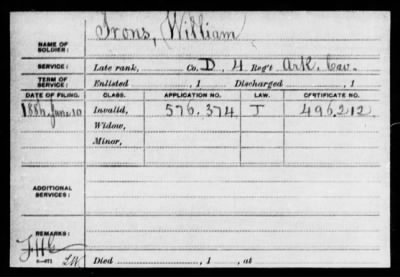 Irons, William
NAME OF SOLDIER:
SERVICE: Late rank, Co. D, 4 Reg't Ark. Cav.
TERM OF SERVICE: Enlisted , 1 Discharged , 1
DATE OF FILING. CLASS. APPLICATION NO. LAW. CERTIFICATE NO.
1886, June 10 Invalid, 576.374 J 496.212
Widow,
Minor,
ADDITIONAL SERVICES:
REMARKS:
Died , 1 , at